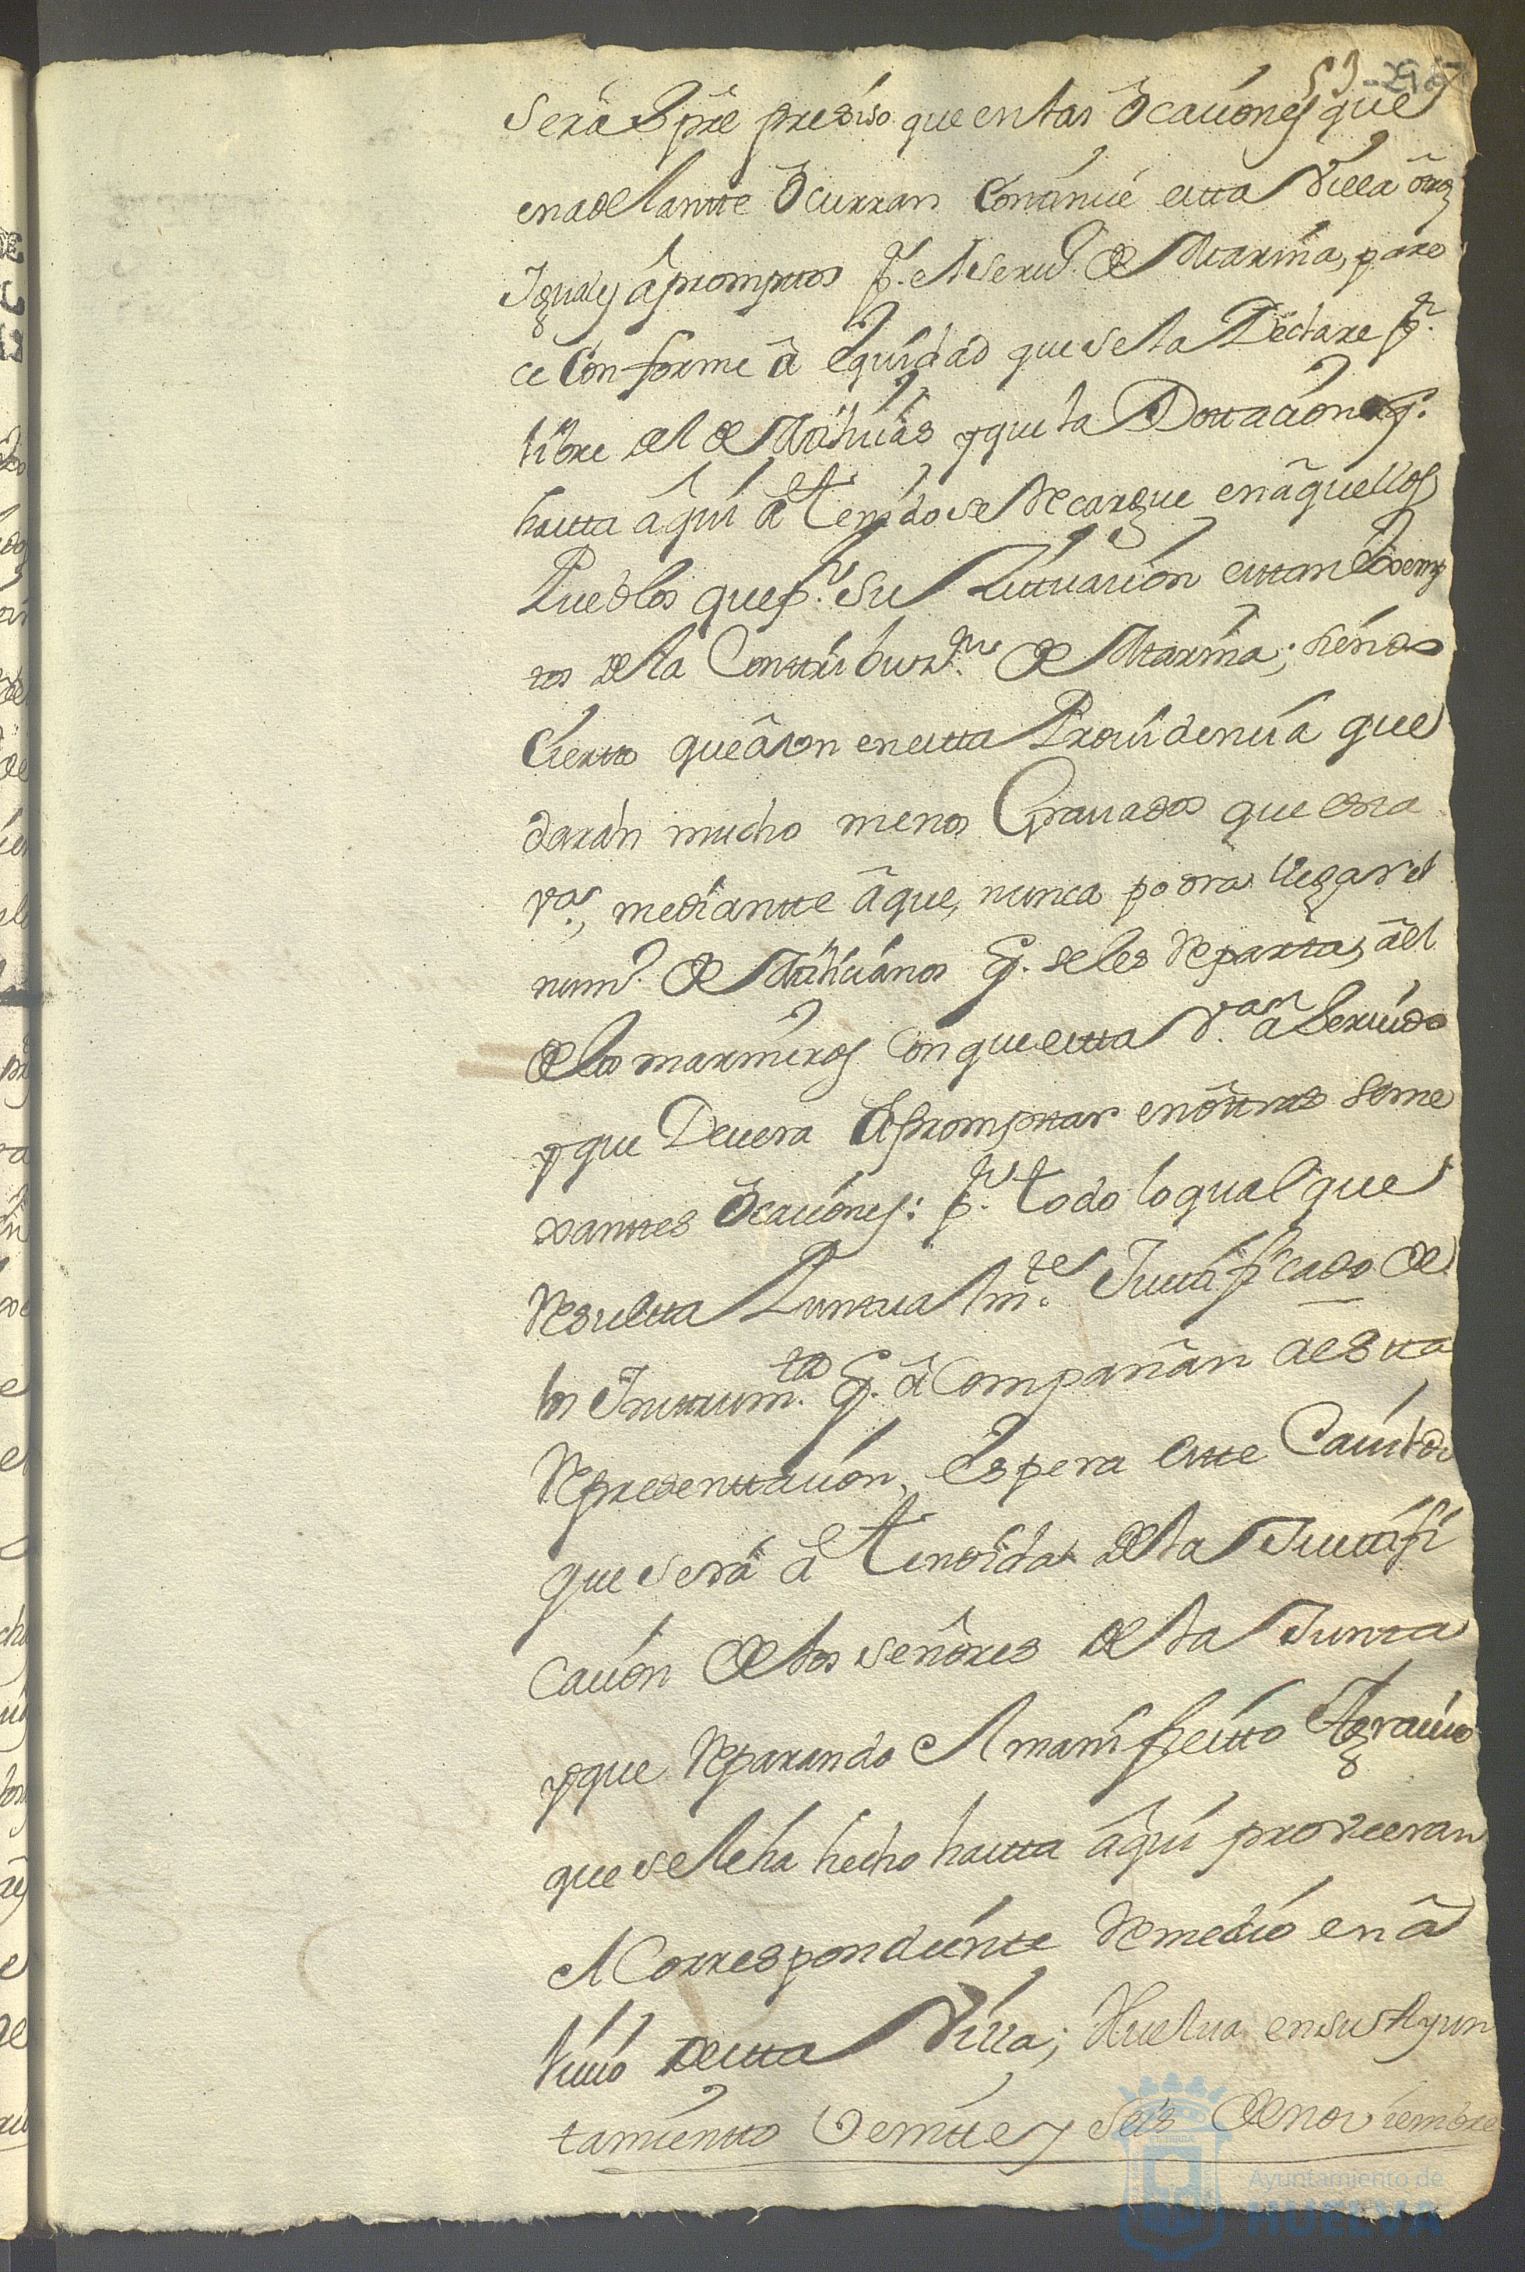 53
será Spre presiso que en las ôcaciones que
en adelantte ôcurran Continue estta Villa ôtros
Yguales âpromptos pr. el servo. de Marina, pare
ce Conforme â equidad que se la Declare pr.
libre del de Milicias y que la Dottacion q.
hasta âqui â tenido se Recargue en âquellos
Pueblos que pr. su situacion esttan Exsemp
tos de la Conttribuzn. de Marina; siendo
Cierto que âun en estta Providencia que
darán mucho menos Gravados que esta
va., mediantte âque, nunca podra llegar el
numo. de Milicianos q. se les Reparta, âel
de los marineros con que estta va. â Servido
y que Devera âpromptar en ôttras seme
xanttes ôcaciones: pr. todo lo qual que
Resultta Puntualmte. Justificado de
los Insttrumtos. q. âCompañan a estta
Representtacion, Espera estte Cavildo
que será âtendida de la Justtifi
cacion de los señôres de la Junta
y que Reparando el manifiestto Agravio
que se le ha hecho hastta âqui proveeran
el Correspondientte Remedio en â
livio de estta Villa; Huelva en su Ayun
tamientto Veintte y seis de noviembre
Ayuntamiento de
HUELVA